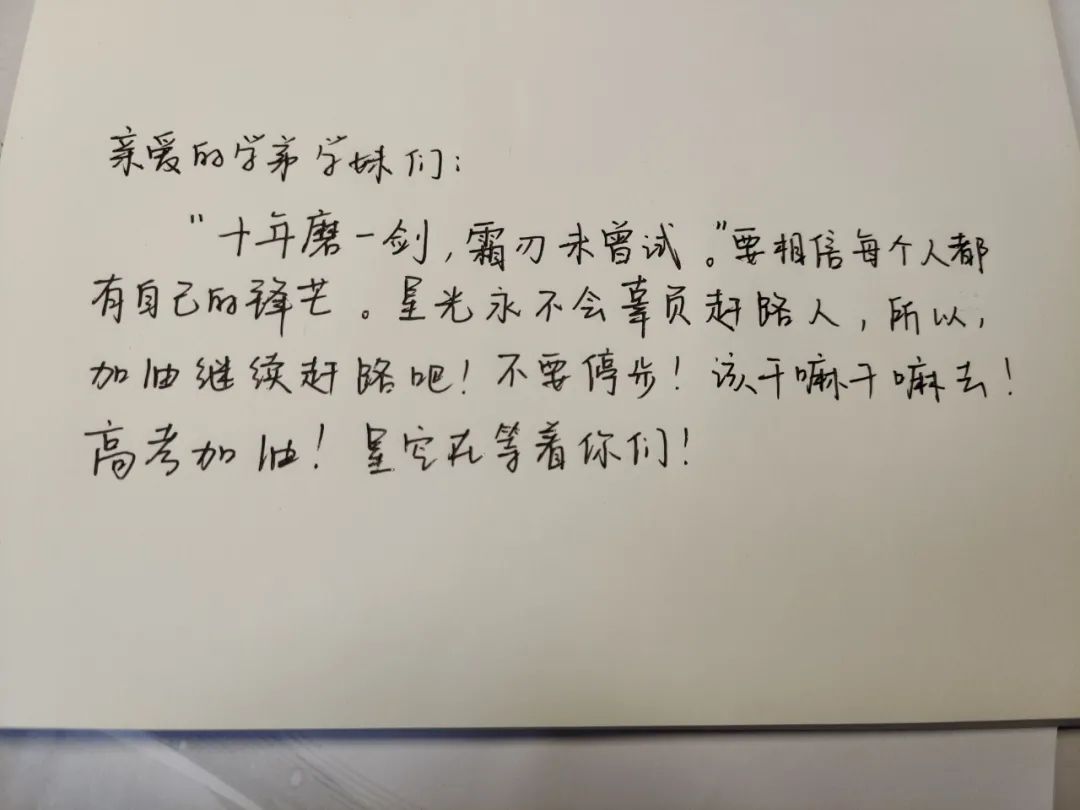 亲爱的学弟学妹们：
“十年磨一剑，霜刃未曾试。”要相信每个人都
有自己的锋芒。星光永不会辜负赶路人，所以，
加油继续赶路吧！不要停步！该干嘛干嘛去！
高考加油！星空在等着你们！